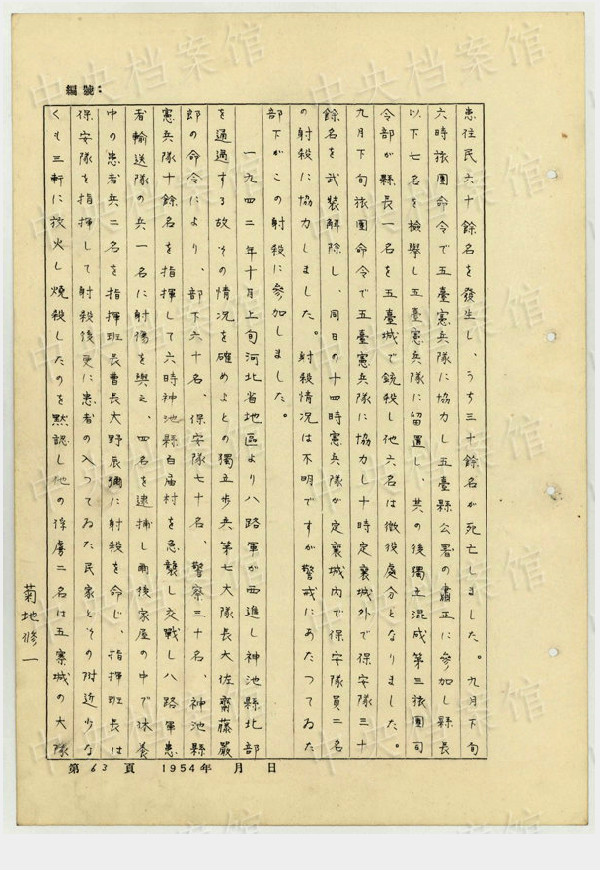 編號:
患住民六十餘名を發生し、うち三十餘名が死亡しました。九月下旬
六時旅團命令で五臺憲兵隊に協力し五臺縣公署の肅正に參加し縣長
以下七名を檢擧し五臺憲兵隊に留置し、其の後獨立混成第三旅團司
令部が縣長一名を五臺城で銃殺し他六名は徴役處分となりました。
九月下旬旅團命令で五臺憲兵隊に協力し十時定襄城外で保安隊三十
餘名を武装解除し、同日の十四時憲兵隊が定襄城内で保安隊員二名
の射殺に協力しました。射殺情况は不明ですが警戒にあたつてゐた
部下がこの射殺に參加しました。
一九四二年十月上旬河北省地區より八路軍が西進し神池縣北部
を通過する故その情况を確めよとの獨立歩兵第七大隊長大佐齋藤嚴
郎の命令により、部下六十名、保安隊七十名、警察三十名、神池縣
憲兵隊十餘名を指揮して六時神池縣百庙村を急襲し交戰し八路軍患
者輸送隊の兵一名に射傷を與え、四名を逮捕し雨後家屋の中で休養
中の患者兵二名を指揮班長曹長大野辰彌に射殺を命じ、指揮班長は
保安隊を指揮して射殺後更に患者の入つてゐた民家とその附近少な
くも三軒に放火し燒殺したのを黙認し他の俘虜二名は五寨城の大隊
菊地修一
第63頁 1954年 月 日
中央档案馆